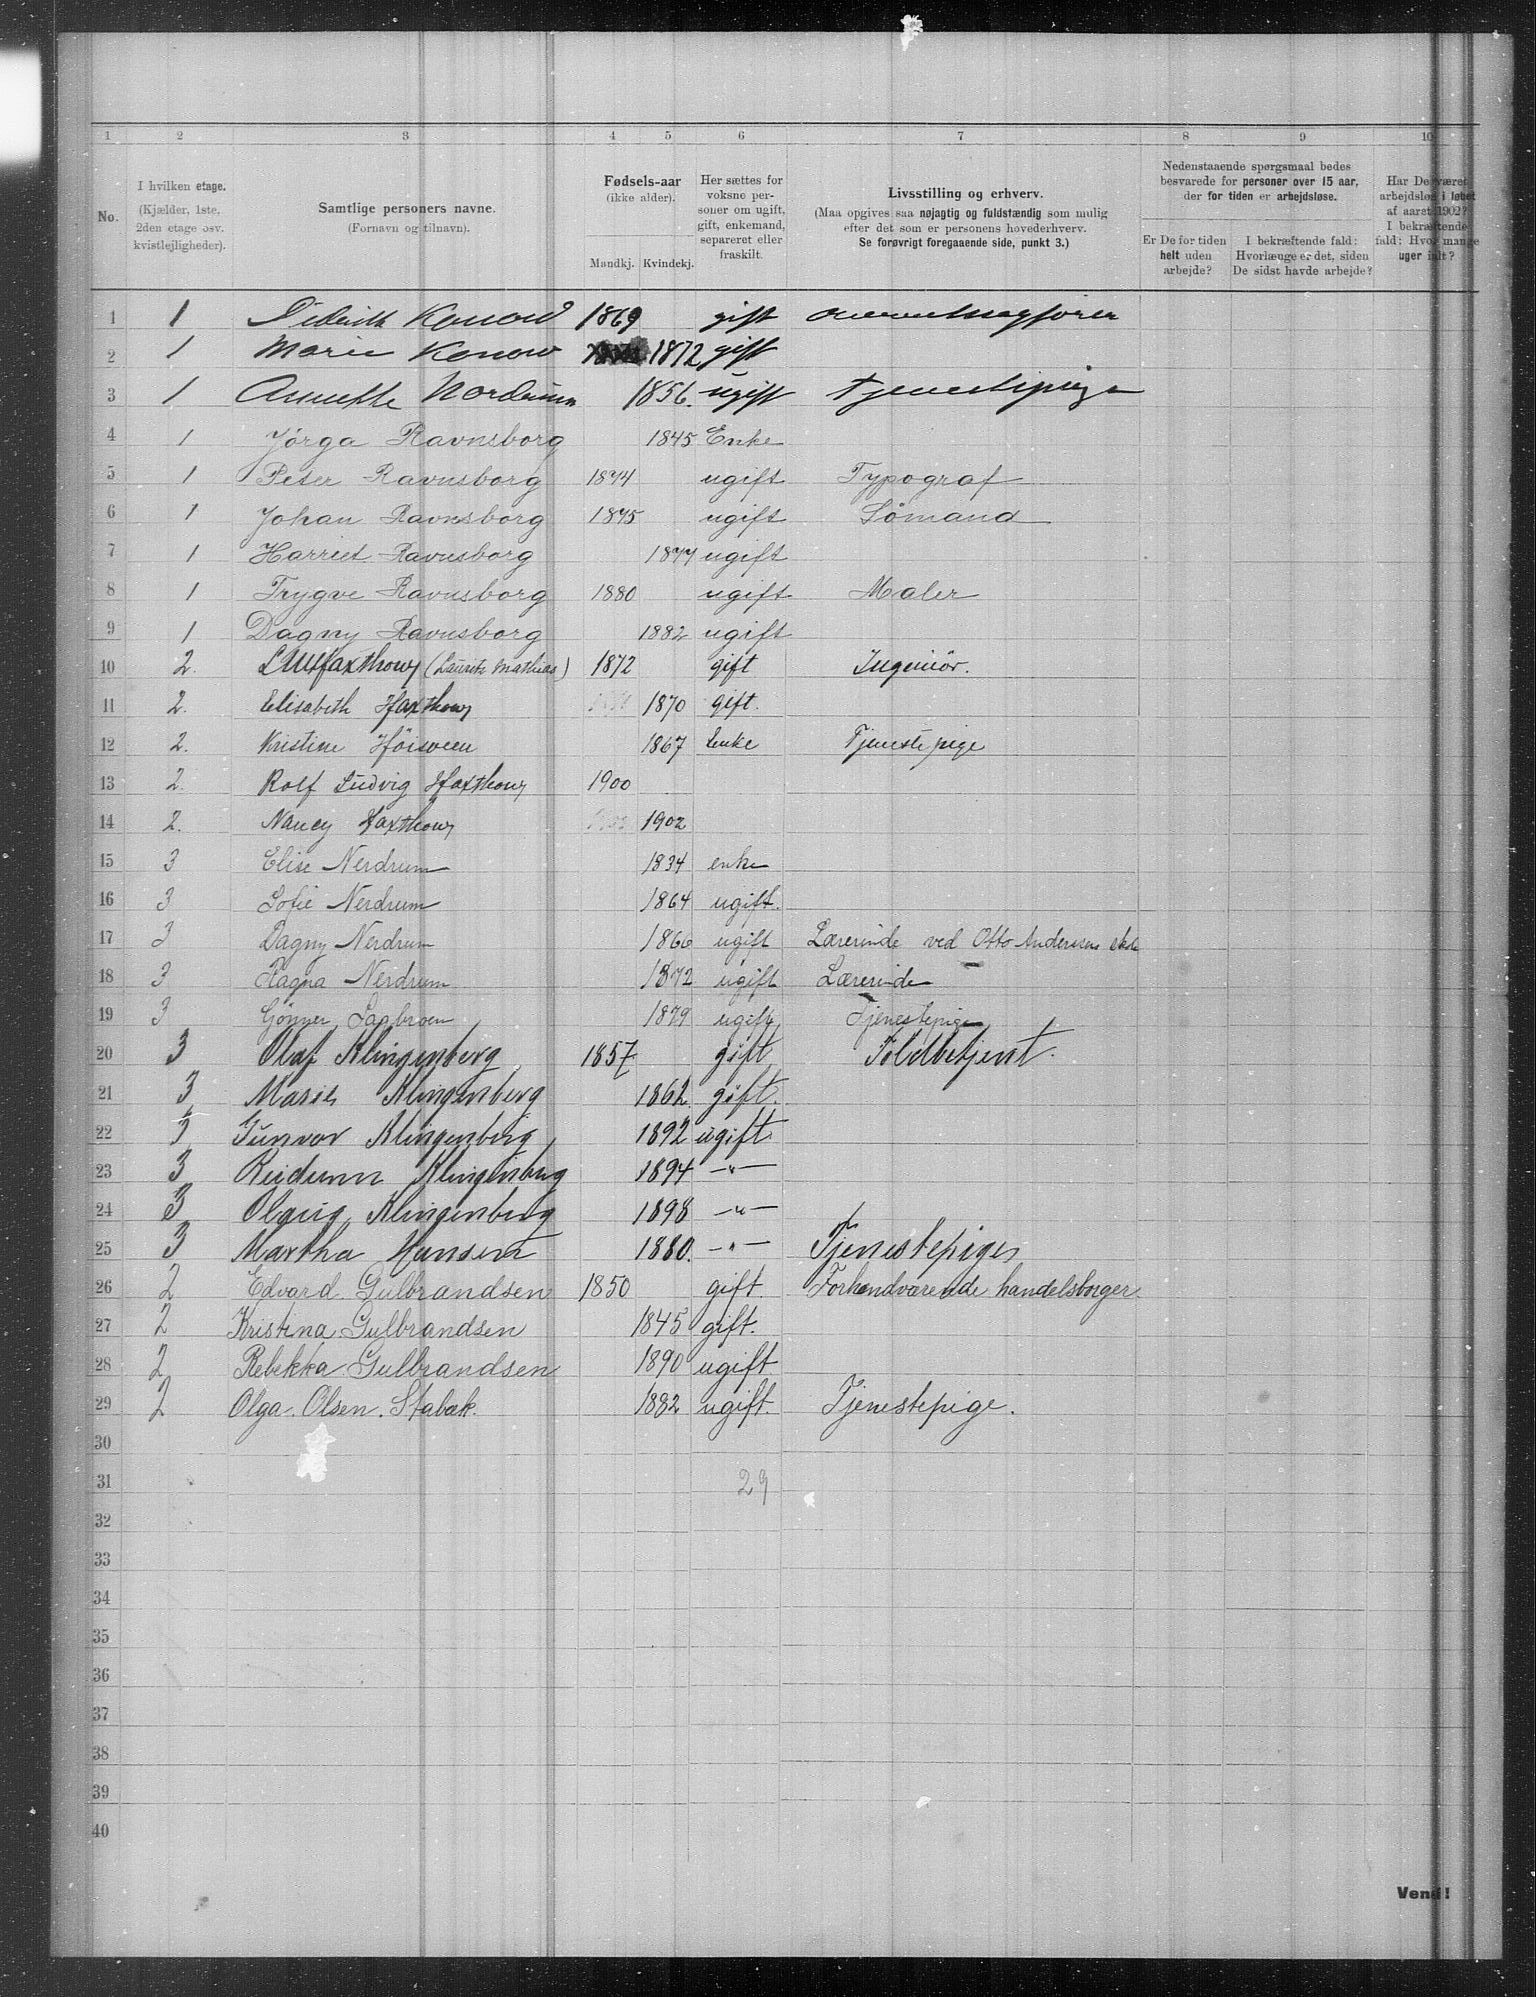 1 2 3 4 5 6 7 8 9 10
No.
I hvilken etage.
(Kjælder, 1ste,
2den etage osv.
kvistlejligheder).
Samtlige personers navne.
(Fornavn og tilnavn).
Fødsels-aar
(ikke alder).
Mandkj. Kvindekj.
Her sættes for
voksne per-
soner om ugift,
gift, enkemand,
separeret eller
fraskilt.
Livsstilling og erhverv.
(Maa opgives saa nøjagtig og fuldstændig som mulig
efter det som er personens hovederhverv.
Se forøvrigt foregaaende side, punkt 3.)
Nedenstaaende spørgsmaal bedes
besvarede for personer over 15 aar,
der for tiden er arbejdsløse.
Er De for tiden
helt uden
arbejde?
I bekræftende fald:
Hvorlænge er det, siden
De sidst havde arbejde?
Har De været
arbejdsløs i løbet
af aaret 1902?
I bekræftende
fald: Hvor mange
uger ialt?
1 1 Didrik Konow 1869 gift overretssagfører
2 1 Marie Konow 1872 gift
3 1 Annette Nordrum 1856. ugift Tjenestepige
4 1 Jørga Ravnsborg 1845 Enke
5 1 Peter Ravnsborg 1874 ugift Typograf
6 1 Johan Ravnsborg 1875 ugift Sømand
7 1 Harriet Ravnsborg 1877 ugift
8 1 Trygve Ravnsborg 1880 ugift Maler
9 1 Dagny Ravnsborg 1882 ugift
10 2. LM Haxthow (Lauritz Mathias) 1872 gift Ingeniør.
11 2. Elisabeth Haxthow 1870 gift.
12 2. Kristine Høisveen 1867 Enke Tjenestepige
13 2. Rolf Ludvig Haxthow 1900
14 2. Nancy Haxthow 1902
15 3 Elise Nerdrum 1834 enke
16 3 Sofie Nerdrum 1864 ugift.
17 3 Dagny Nerdrum 1866 ugift Lærerinde ved Otto Andersens skole
18 3 Ragna Nerdrum 1872 ugift Lærerinde
19 3 1879 ugift Tjenestepige
20 3 Olaf Klingenberg 1857 gift Toldbetjent.
21 3 Marie Klingenberg 1862 gift.
22 3 Gunvor Klingenberg 1892 ugift
23 3 Reidunn Klingenberg 1894 —"—
24 3 Olaug Klingenberg 1898 —"—
25 3 Martha Hansen 1880. —"— Tjenestepige
26 2 Edvard Gulbrandsen 1850 gift. Forhenværende handelsborger
27 2 Kristina Gulbrandsen 1845 gift.
28 2 Rebekka Gulbrandsen 1890 ugift
29 2 Olga. Olsen. Stabæk. 1882 ugift. Tjenestepige.
30
31 29
32
33
34
35
36
37
38
39
40
Vend!